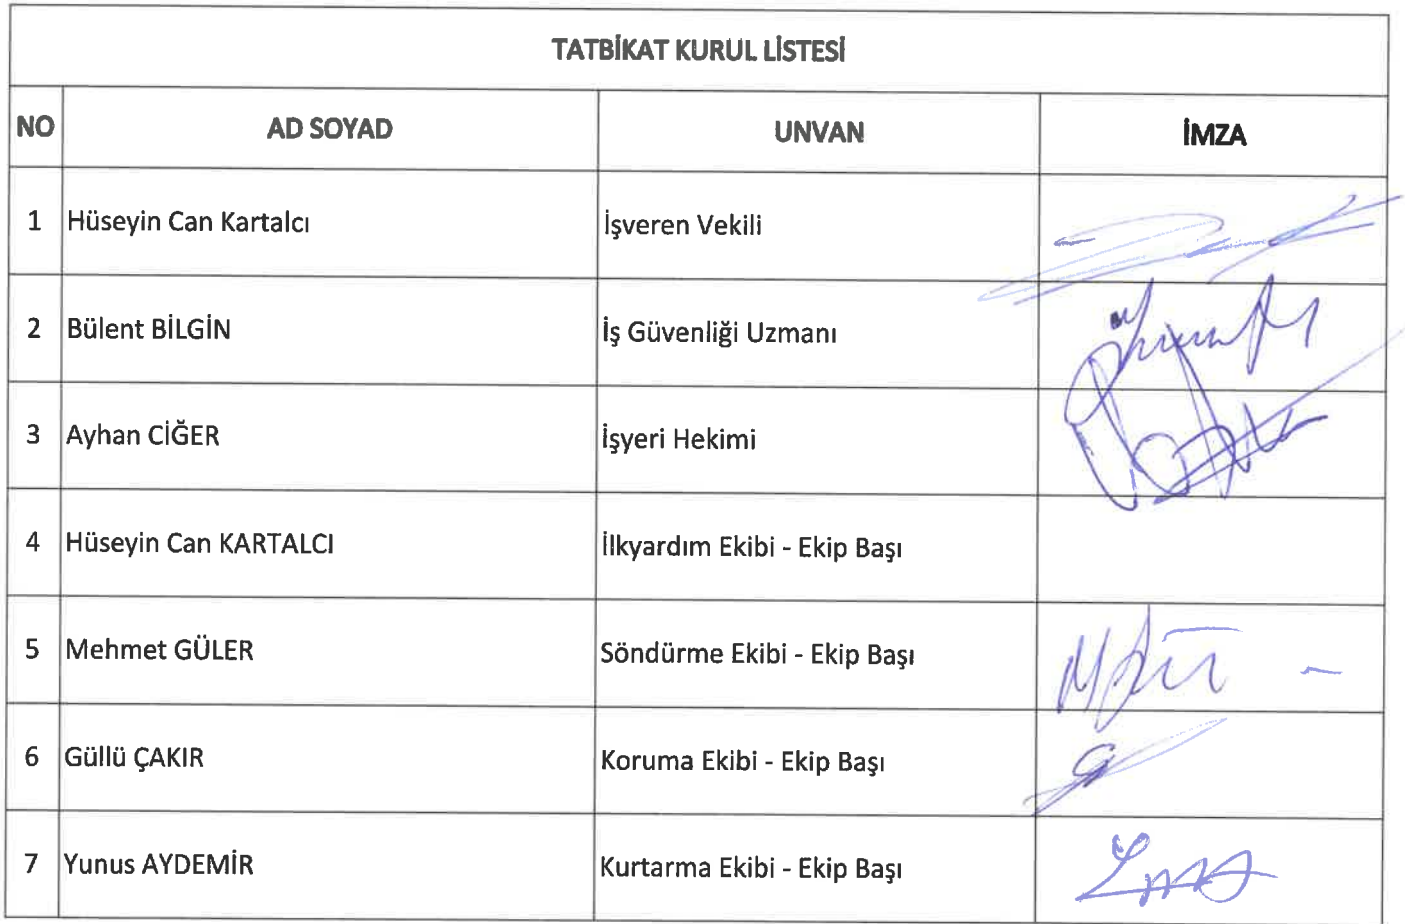 TATBİKAT KURUL LİSTESİ
NO AD SOYAD UNVAN İMZA
1 Hüseyin Can Kartalcı İşveren Vekili
2 Bülent BİLGİN İş Güvenliği Uzmanı
3 Ayhan CİĞER İşyeri Hekimi
4 Hüseyin Can KARTALCI İlkyardım Ekibi - Ekip Başı
5 Mehmet GÜLER Söndürme Ekibi - Ekip Başı
6 Güllü ÇAKIR Koruma Ekibi - Ekip Başı
7 Yunus AYDEMİR Kurtarma Ekibi - Ekip Başı